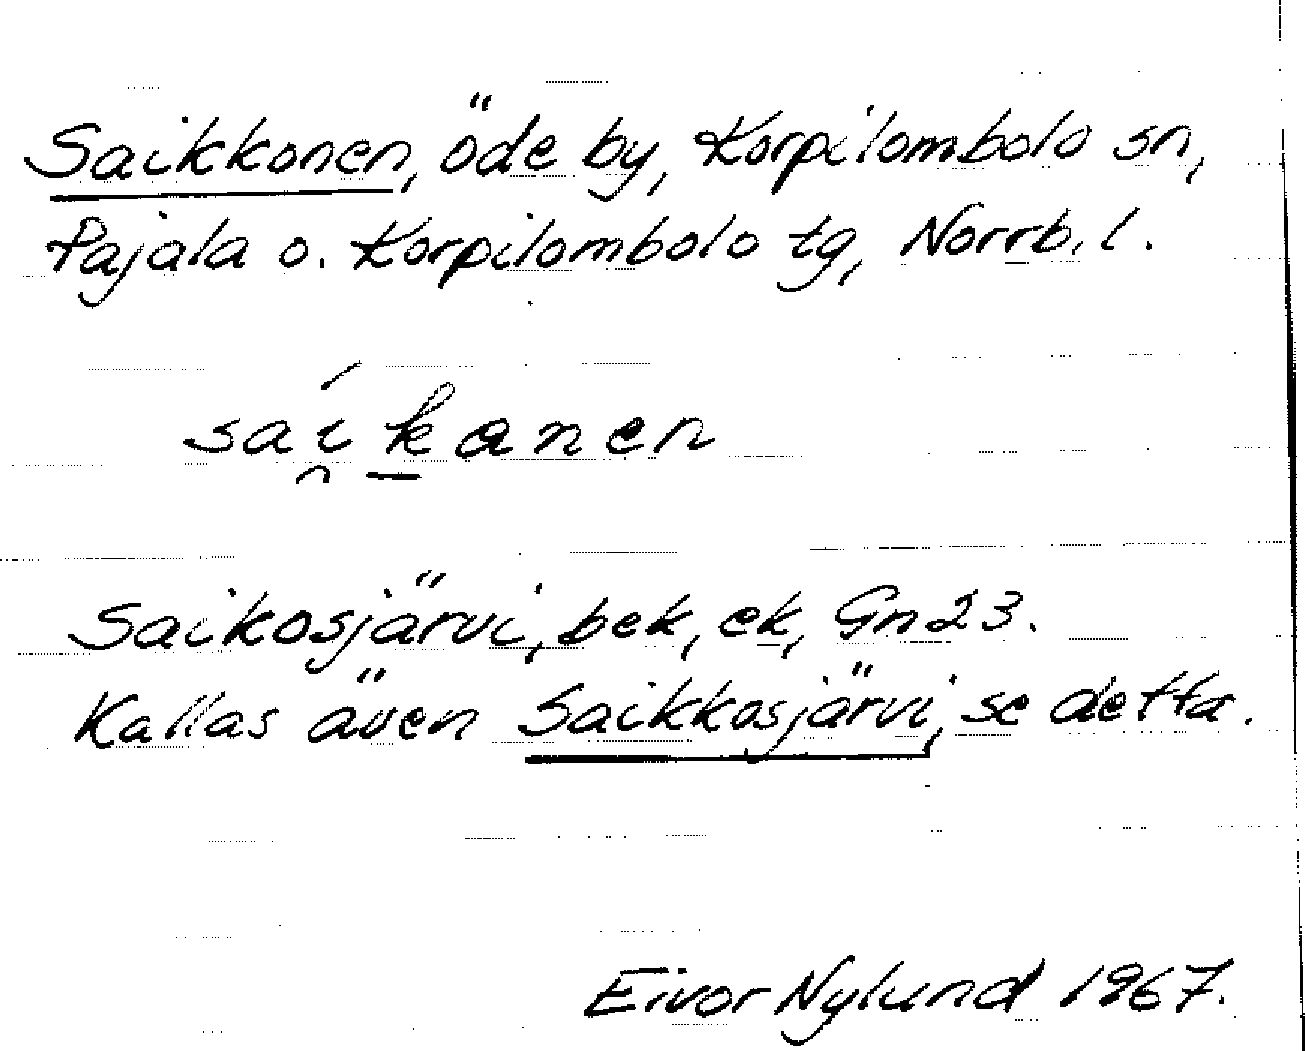 Saikkonen, öde by, Korpilombolo sn,
Pajala o. Korpilombolo tg, Norrb. l.
saí̯k̲anen
Saikosjärvi, bek, ek, Gn23.
Kallas även Saikkosjärvi, se detta.
Eivor Nylund 1967.